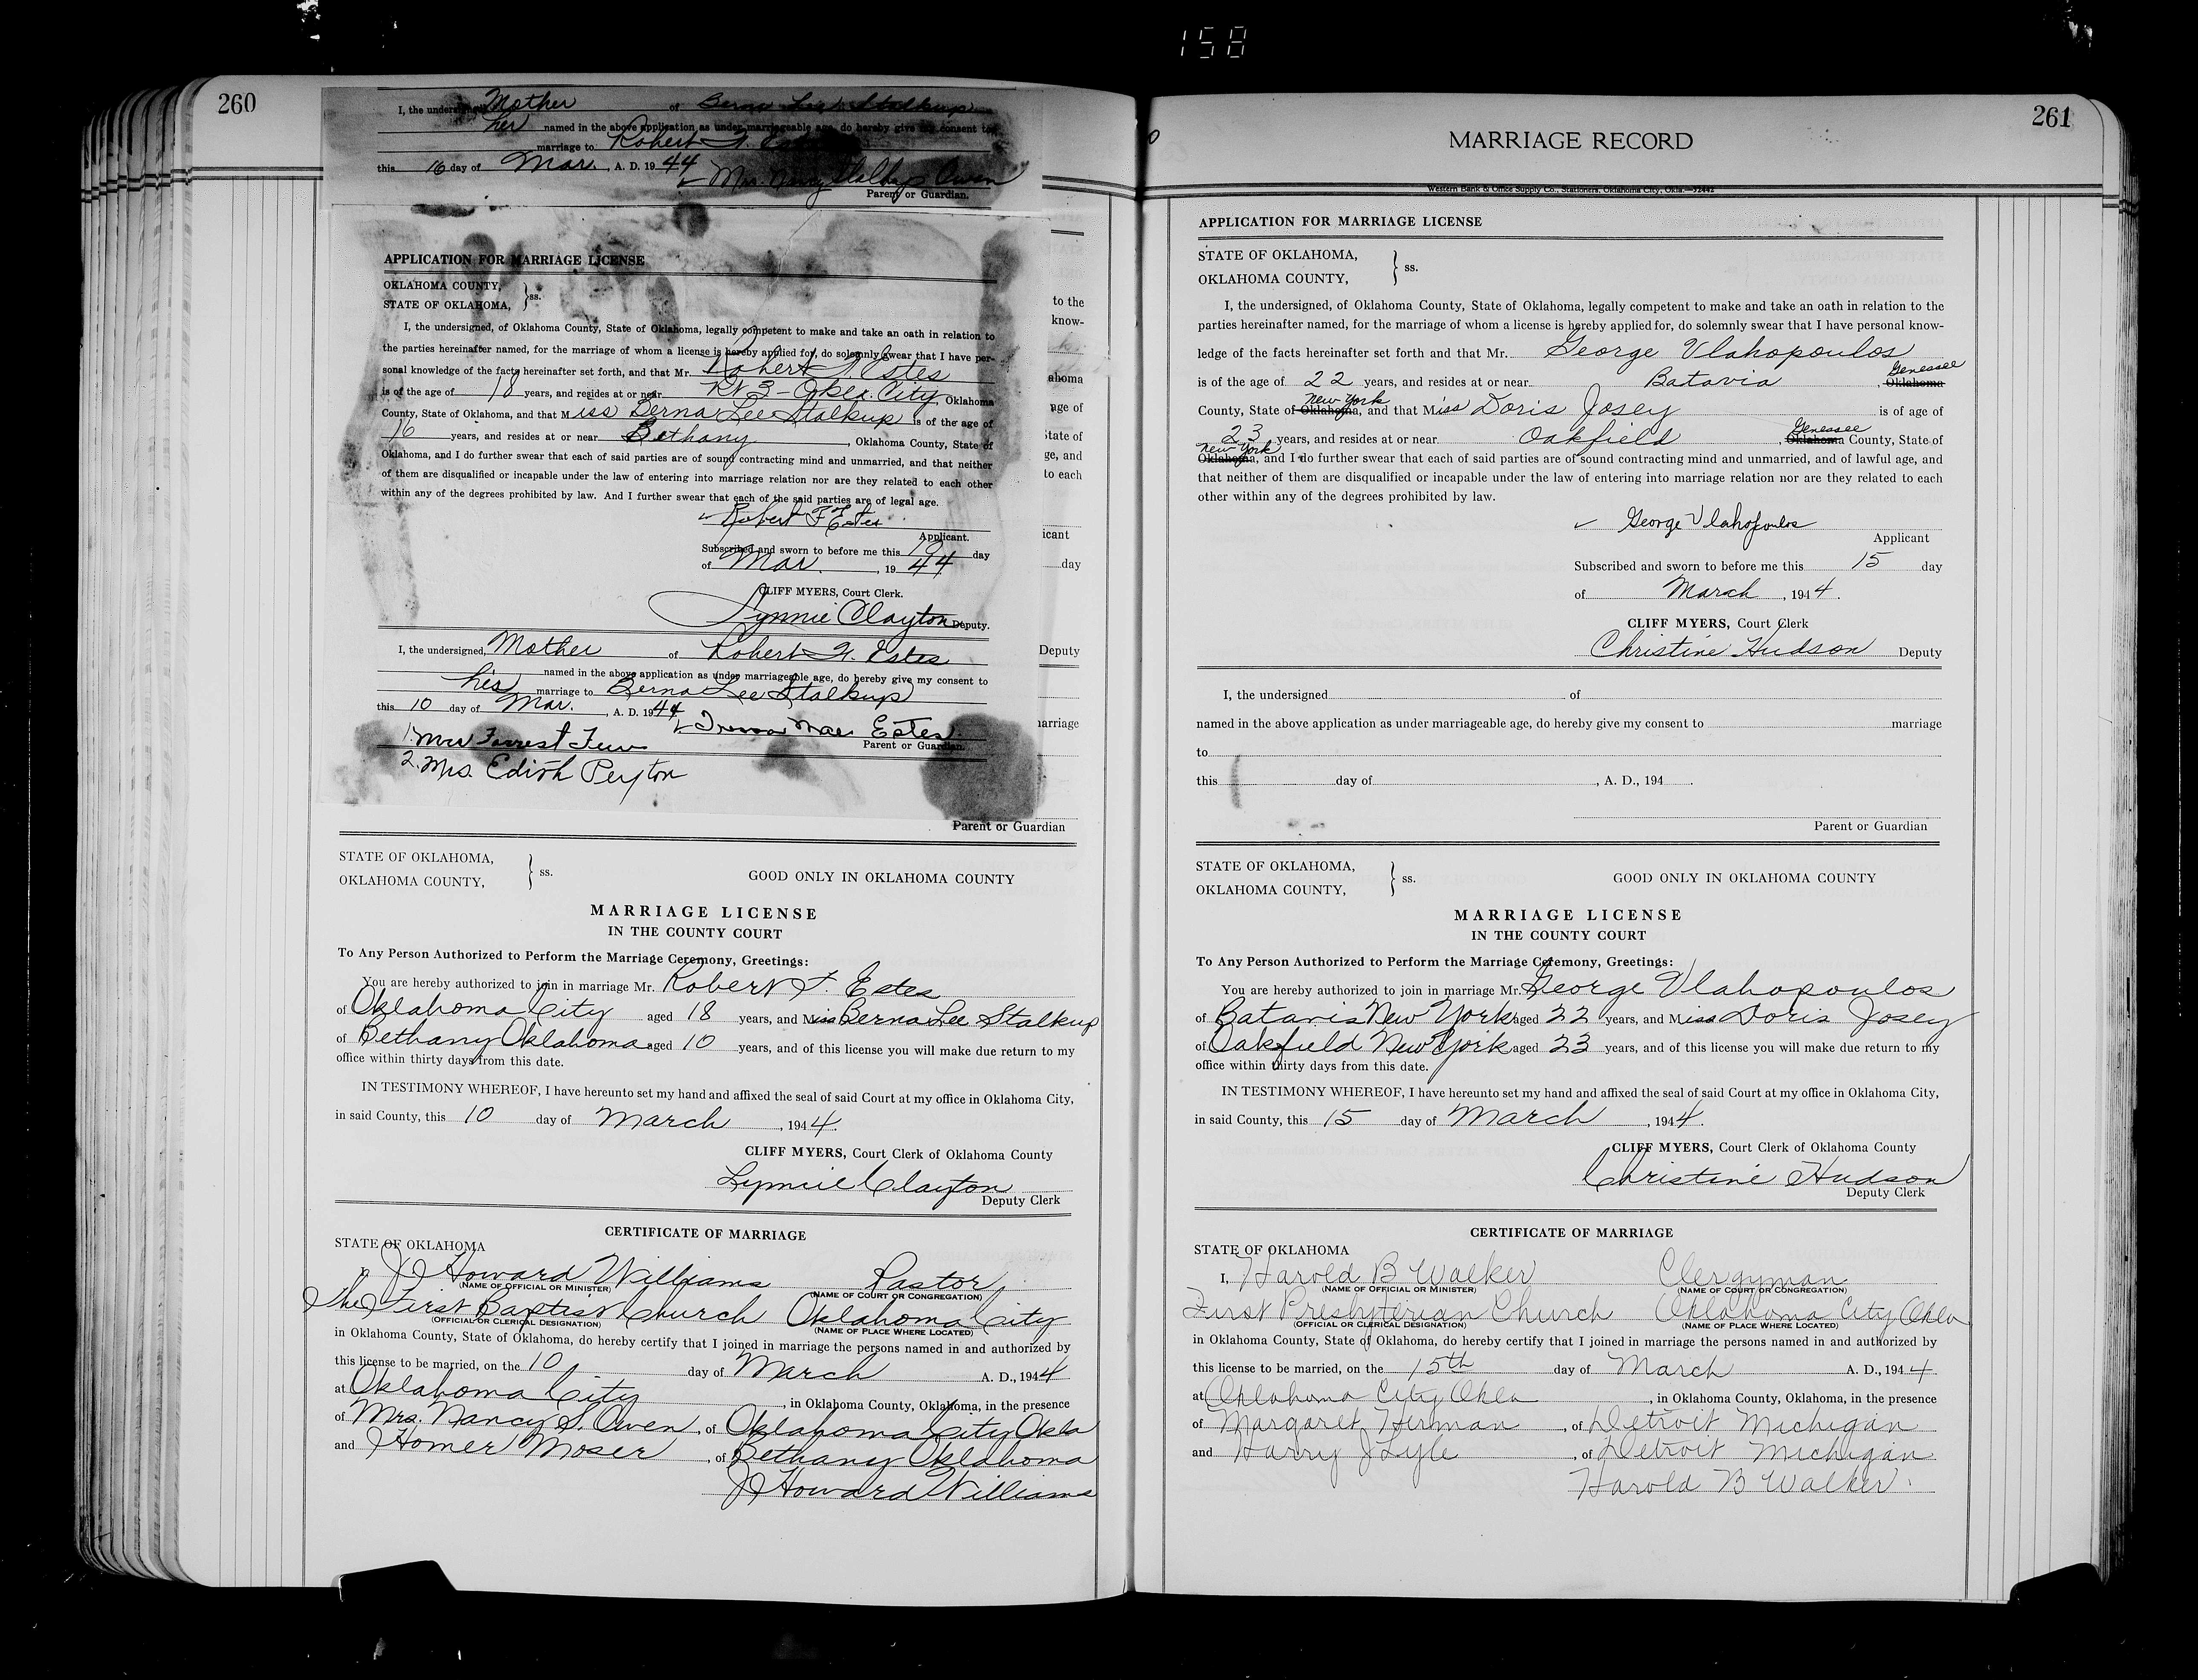 158
260
I, the undersigned Mother of Berna Lee Stalkup
her named in the above application as under marriageable age, do hereby give my consent to
marriage to Robert F. Estes
this 10 day of Mar. , A. D. 19 44
Mrs. Nancy Stalkup Owen
Parent or Guardian.
APPLICATION FOR MARRIAGE LICENSE
OKLAHOMA COUNTY,
STATE OF OKLAHOMA, } ss.
I, the undersigned, of Oklahoma County, State of Oklahoma, legally competent to make and take an oath in relation to
the parties hereinafter named, for the marriage of whom a license is hereby applied for, do solemnly swear that I have per-
sonal knowledge of the facts hereinafter set forth, and that Mr. Robert F. Estes
is of the age of 18 years, and resides at or near Rt 3 - Okla. City, Oklahoma
County, State of Oklahoma, and that Miss Berna Lee Stalkup is of the age of
16 years, and resides at or near Bethany , Oklahoma County, State of
Oklahoma, and I do further swear that each of said parties are of sound contracting mind and unmarried, and that neither
of them are disqualified or incapable under the law of entering into marriage relation nor are they related to each other
within any of the degrees prohibited by law. And I further swear that each of the said parties are of legal age.
Robert F Estes
Applicant.
Subscribed and sworn to before me this 10 day
of Mar. , 19 44
CLIFF MYERS, Court Clerk.
Lynnie Clayton Deputy.
I, the undersigned, Mother of Robert F. Estes
named in the above application as under marriageable age, do hereby give my consent to
his marriage to Berna Lee Stalkup
this 10 day of Mar. , A. D. 19 44
Mae Estes
Parent or Guardian.
1. Mrs Forrest
2. Mrs. Edith Peyton
to the
know-
ahoma
age of
State of
ge, and
to each
icant
day
Deputy
marriage
Parent or Guardian
STATE OF OKLAHOMA,
OKLAHOMA COUNTY, } ss. GOOD ONLY IN OKLAHOMA COUNTY
MARRIAGE LICENSE
IN THE COUNTY COURT
To Any Person Authorized to Perform the Marriage Ceremony, Greetings:
You are hereby authorized to join in marriage Mr. Robert F. Estes
of Oklahoma City aged 18 years, and Miss Berna Lee Stalkup
of Bethany Oklahoma aged 10 years, and of this license you will make due return to my
office within thirty days from this date.
IN TESTIMONY WHEREOF, I have hereunto set my hand and affixed the seal of said Court at my office in Oklahoma City,
in said County, this 10 day of March , 194 4.
CLIFF MYERS, Court Clerk of Oklahoma County
Lynnie Clayton
Deputy Clerk
CERTIFICATE OF MARRIAGE
STATE OF OKLAHOMA
J Howard Williams Pastor
(NAME OF OFFICIAL OR MINISTER) (NAME OF COURT OR CONGREGATION)
The First Baptist Church Oklahoma City
(OFFICIAL OR CLERICAL DESIGNATION) (NAME OF PLACE WHERE LOCATED)
in Oklahoma County, State of Oklahoma, do hereby certify that I joined in marriage the persons named in and authorized by
this license to be married, on the 10 day of March A. D., 194 4
at Oklahoma City , in Oklahoma County, Oklahoma, in the presence
of Mrs. Nancy S. Owen , of Oklahoma City Okla
and J Homer Moser , of Bethany Oklahoma
J Howard Williams
261
MARRIAGE RECORD
Western Bank & Office Supply Co., Stationers, Oklahoma City, Okla.—32442
APPLICATION FOR MARRIAGE LICENSE
STATE OF OKLAHOMA,
OKLAHOMA COUNTY, } ss.
I, the undersigned, of Oklahoma County, State of Oklahoma, legally competent to make and take an oath in relation to the
parties hereinafter named, for the marriage of whom a license is hereby applied for, do solemnly swear that I have personal know-
ledge of the facts hereinafter set forth and that Mr. George Vlahopoulos
is of the age of 22 years, and resides at or near Batavia , Oklahoma Genessee
County, State of Oklahoma New York, and that Miss Doris Josey is of age of
23 years, and resides at or near Oakfield , Oklahoma Genessee County, State of
Oklahoma New York, and I do further swear that each of said parties are of sound contracting mind and unmarried, and of lawful age, and
that neither of them are disqualified or incapable under the law of entering into marriage relation nor are they related to each
other within any of the degrees prohibited by law.
George Vlahopoulos
Applicant
Subscribed and sworn to before me this 15 day
of March , 194 4.
CLIFF MYERS, Court Clerk
Christine Hudson Deputy
I, the undersigned of
named in the above application as under marriageable age, do hereby give my consent to marriage
to
this day of , A. D., 194 .
Parent or Guardian
STATE OF OKLAHOMA,
OKLAHOMA COUNTY, } ss. GOOD ONLY IN OKLAHOMA COUNTY
MARRIAGE LICENSE
IN THE COUNTY COURT
To Any Person Authorized to Perform the Marriage Ceremony, Greetings:
You are hereby authorized to join in marriage Mr. George Vlahopoulos
of Batavia New York aged 22 years, and Miss Doris Josey
of Oakfield New York aged 23 years, and of this license you will make due return to my
office within thirty days from this date.
IN TESTIMONY WHEREOF, I have hereunto set my hand and affixed the seal of said Court at my office in Oklahoma City,
in said County, this 15 day of March , 194 4.
CLIFF MYERS, Court Clerk of Oklahoma County
Christine Hudson
Deputy Clerk
CERTIFICATE OF MARRIAGE
STATE OF OKLAHOMA
I, Harold B Walker Clergyman
(NAME OF OFFICIAL OR MINISTER) (NAME OF COURT OR CONGREGATION)
First Presbyterian Church Oklahoma City Okla
(OFFICIAL OR CLERICAL DESIGNATION) (NAME OF PLACE WHERE LOCATED)
in Oklahoma County, State of Oklahoma, do hereby certify that I joined in marriage the persons named in and authorized by
this license to be married, on the 15th day of March A. D., 194 4
at Oklahoma City Okla , in Oklahoma County, Oklahoma, in the presence
of Margaret Herman , of Detroit Michigan
and Harry J Lyle , of Detroit Michigan
Harold B Walker.